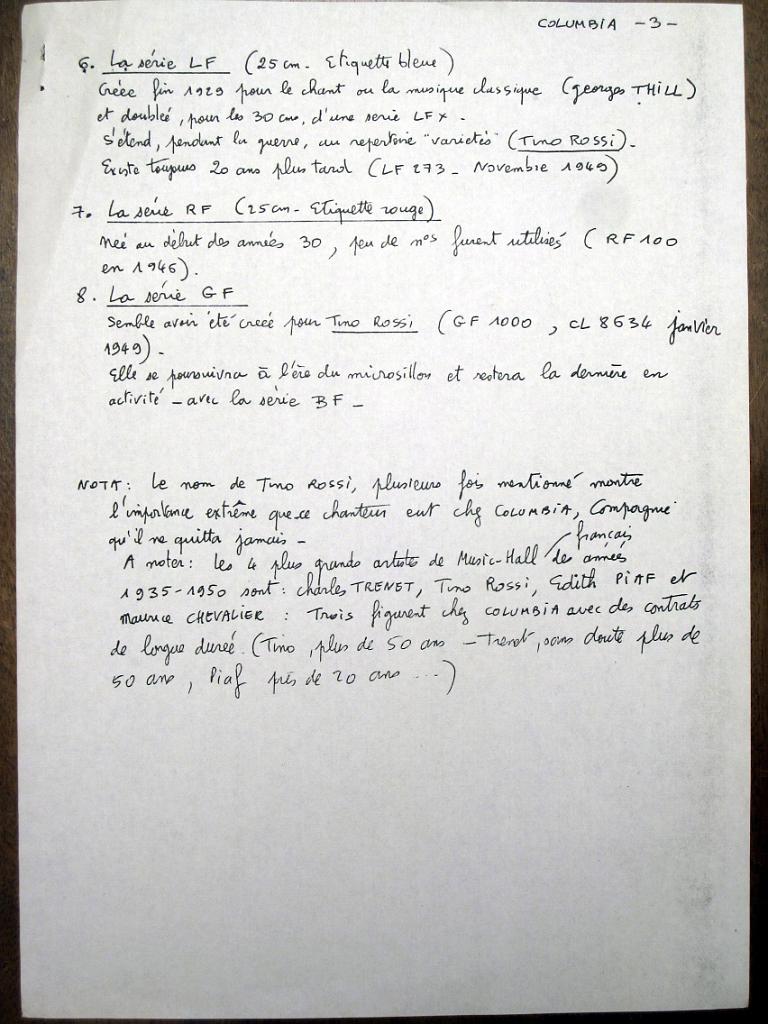 COLUMBIA - 3 -
6. La série LF (25 cm. Etiquette bleue)
Créée fin 1929 pour le chant ou la musique classique (georges THILL)
et doublée, pour les 30 cm, d'une serie LFX.
S'étend, pendant la guerre, au repertoire "variétés" (TINO ROSSI).
Existe toujours 20 ans plus tard (LF 273 - Novembre 1949)
7. La série RF (25 cm - Etiquette rouge)
Née au début des années 30, peu de nos furent utilisés (RF 100
en 1946).
8. La série GF
Semble avoir été créée pour TINO ROSSI (GF 1000, CL 8634 janvier
1949).
Elle se poursuivra à l'ère du microsillon et restera la dernière en
activité - avec la série BF -
NOTA: Le nom de TINO ROSSI, plusieurs fois mentionné montre
l'importance extrême que ce chanteur eut chez COLUMBIA, Compagnie
qu'il ne quitta jamais -
français
A noter: les 4 plus grands artistes de Music-Hall des années
1935-1950 sont: charles TRENET, TINO ROSSI, Edith PIAF et
MAURICE CHEVALIER: Trois figurent chez COLUMBIA avec des contrats
de longue durée (Tino, plus de 50 ans - Trenet, sans doute plus de
50 ans, Piaf près de 20 ans ...)